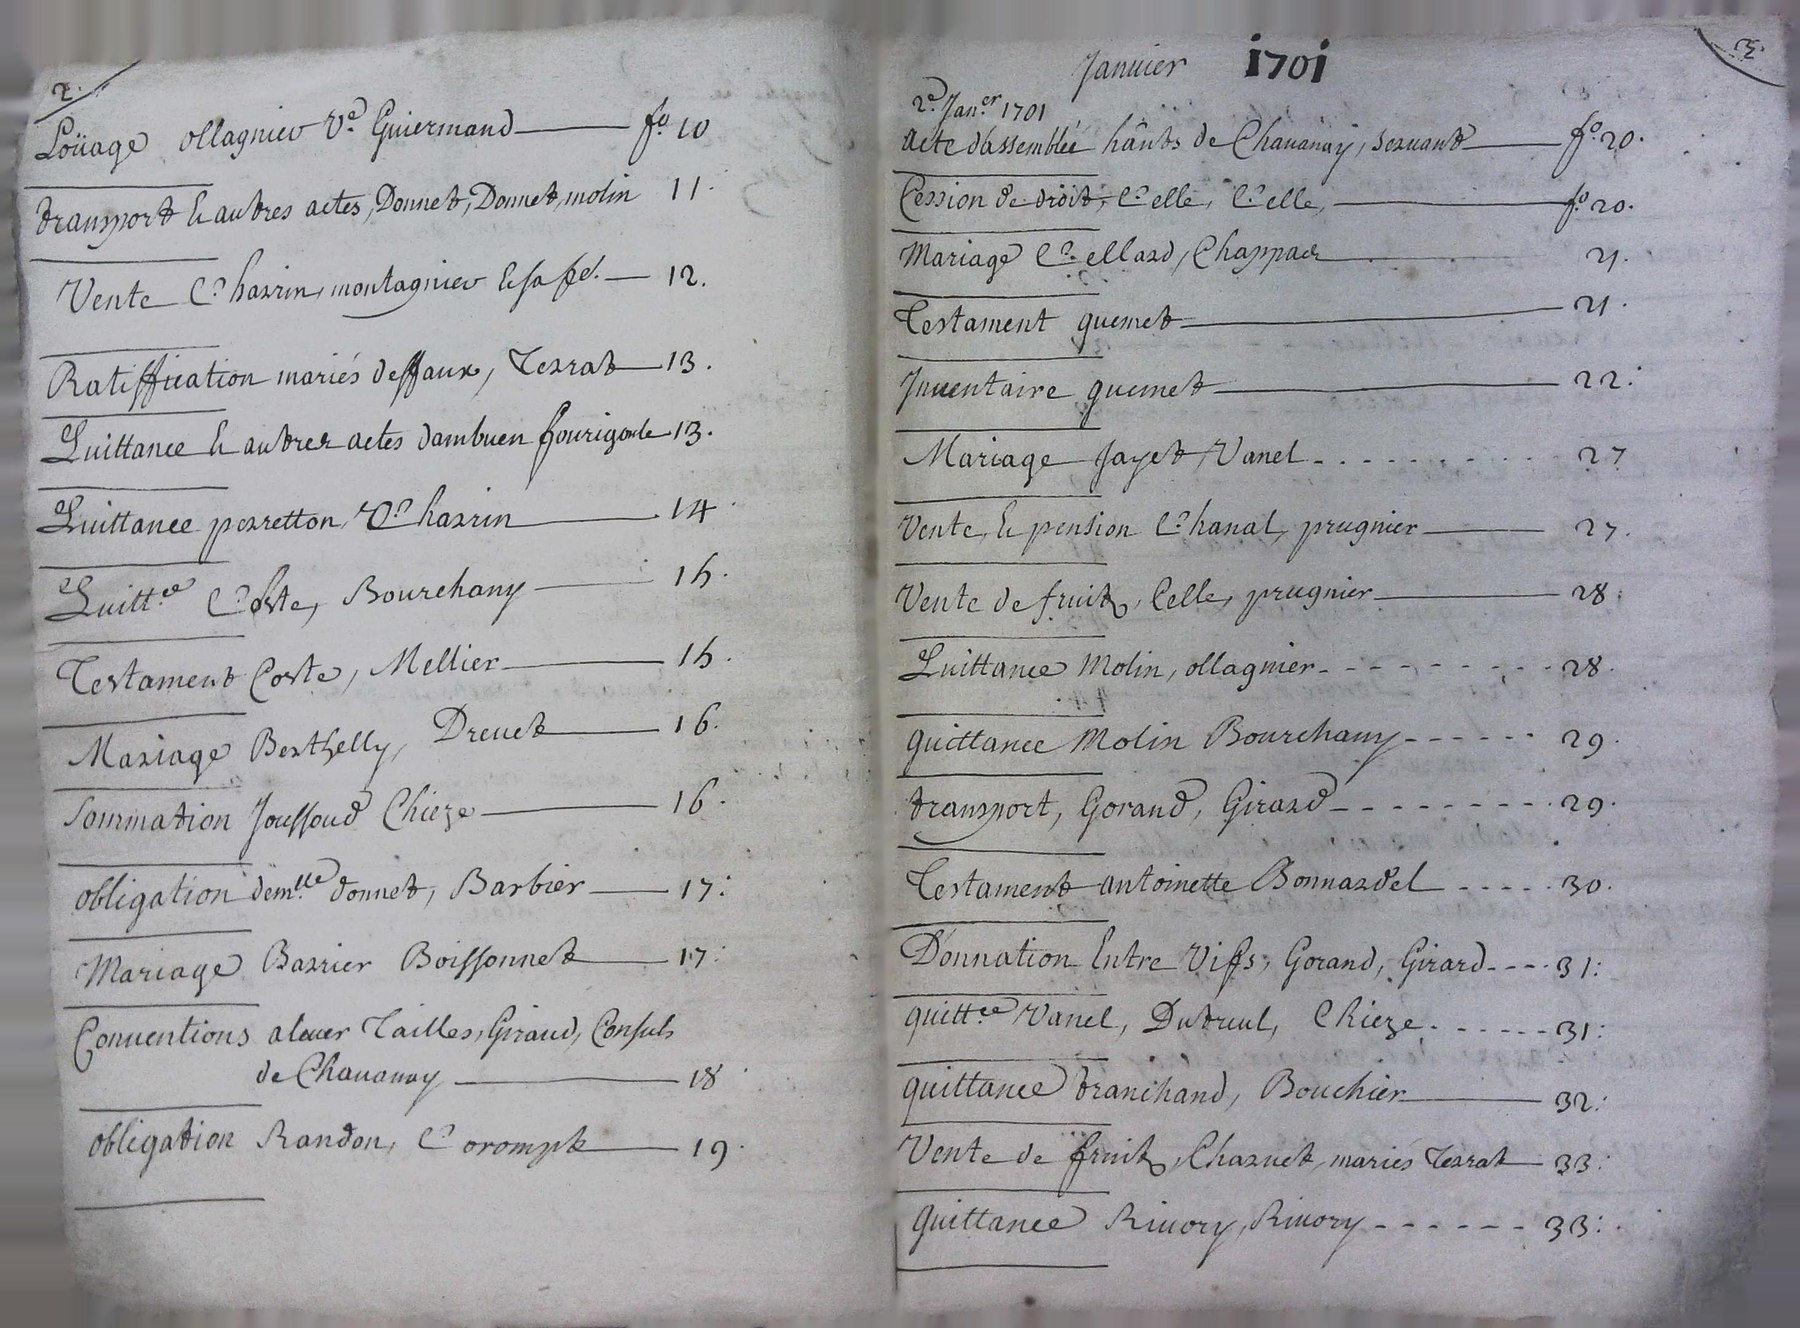 2.
Loüage ollagnier Ve. Guiermand fo. 10
transport & autres actes, Donnet, Donnet, molin 11.
Vente Charrin, montagnier & sa fe. 12.
Ratiffication mariés deffaux, Terrat 13.
Quittance & autres actes dambuen fourigoule 13.
Quittance perretton, Charrin 14.
Quitt.ce Coste, Bourchany 15.
Testament Coste, Mellier 15.
Mariage Berthelly, Dreuet 16.
Sommation Jouffoud Chieze 16.
obligation dem.lle donnet, Barbier 17.
Mariage Barrier Boissonnet 17.
Conuentions aleuer Tailles, Giraud, Consuls
de Chauanay 18.
obligation Randon, Corompt 19.
3.
Januier 1701
2e. Jan.er 1701
acte dassemblée hânts de Chauanay, seruant fo. 20.
Cession de droit, Celle, Celle, fo. 20.
Mariage Cellard, Chappad 21.
Testament guemet 21.
Inuentaire guemet 22.
Mariage Jayet, Vanel 27
Vente, & pension Chanal, prugnier 27.
Vente de fruits, Celle, prugnier 28.
Quittance Molin, ollagnier 28.
quittance Molin Bourchany 29.
transport, Gorand, Girard 29.
Testament antoinette Bonnardel 30.
Donnation Entre Vifs, Gorand, Girard 31.
quitt.ce Vanel, Dutreul, Chieze 31.
quittance tranchand, Bouchier 32.
Vente de fruits, Charuet, mariés Terrat 33.
quittance Riuory, Riuory 33.